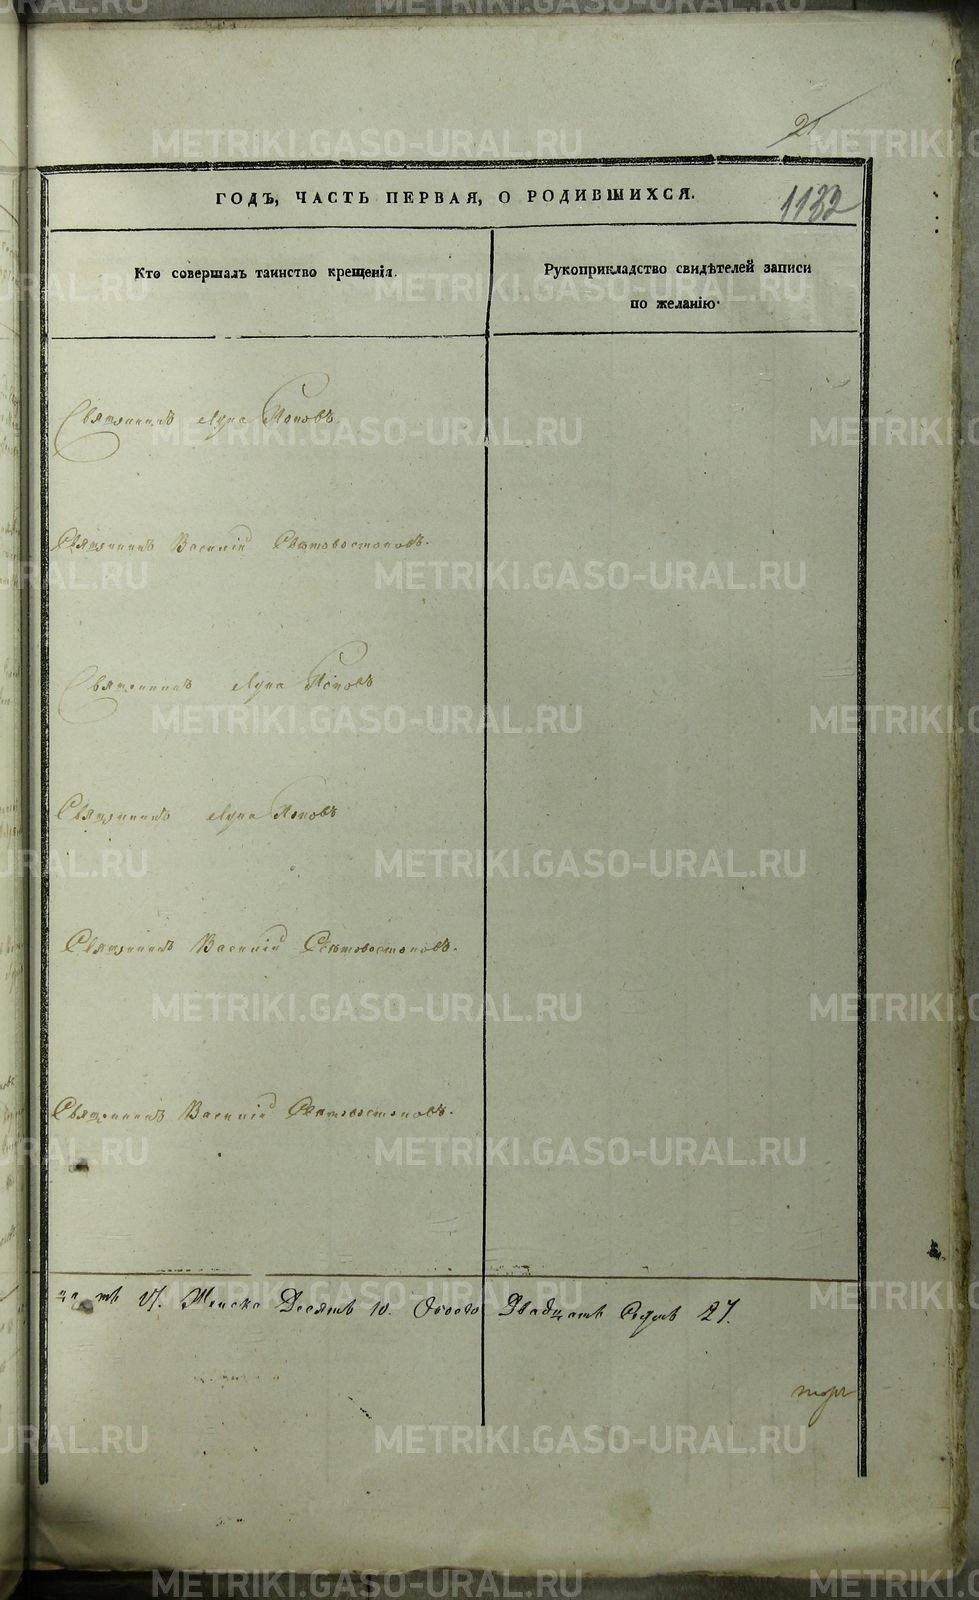 21
ГОДЪ, ЧАСТЬ ПЕРВАЯ, О РОДИВШИХСЯ.
1132
Кто совершалъ таинство крещенія.
Рукоприкладство свидѣтелей записи
по желанію.
Священникъ Лука Поповъ
Священникъ Василій Свѣтовостоковъ.
Священникъ Лука Поповъ
Священникъ Лука Поповъ
Священникъ Василій Свѣтовостоковъ.
Священникъ Василій Свѣтовостоковъ.
17. Женска Десять 10. Обоего Двадцать Седмь 27.
METRIKI.GASO-URAL.RU